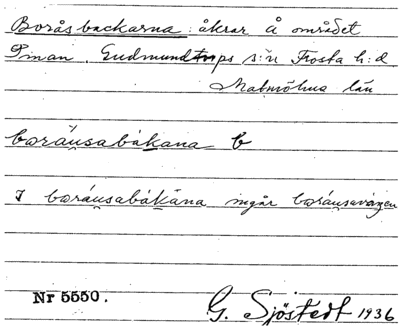 Boråsbackarna: åkrar å området
Tman. Gudmundtorps s:n Frosta h:d
Malmöhus län
boráu̯sabák̬ana b
I boráu̯sabák̬ana ingår boráu̯savägen
Nr 5550.
G. Sjöstedt 1936